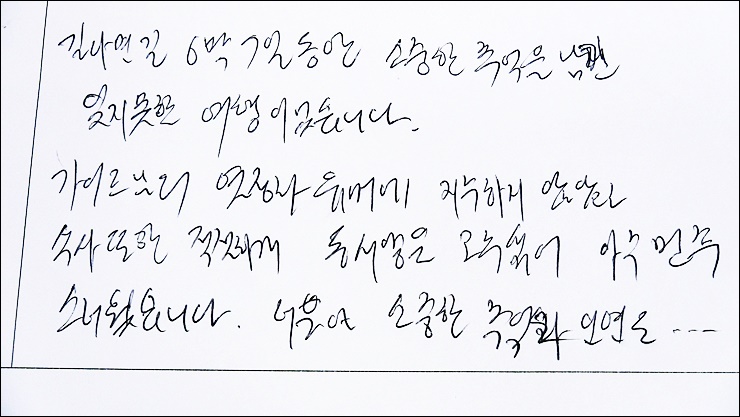 길다면 길 6박 7일동안 소중한 추억을 남긴
잊지못할 여행이었습니다.
가이드님의 열정과 유머에 지루하지 않았고
식사 또한 적절하게 동서양을 모두 아주 만족
스러웠습니다. 더불어 소중한 추억과 인연도 ----